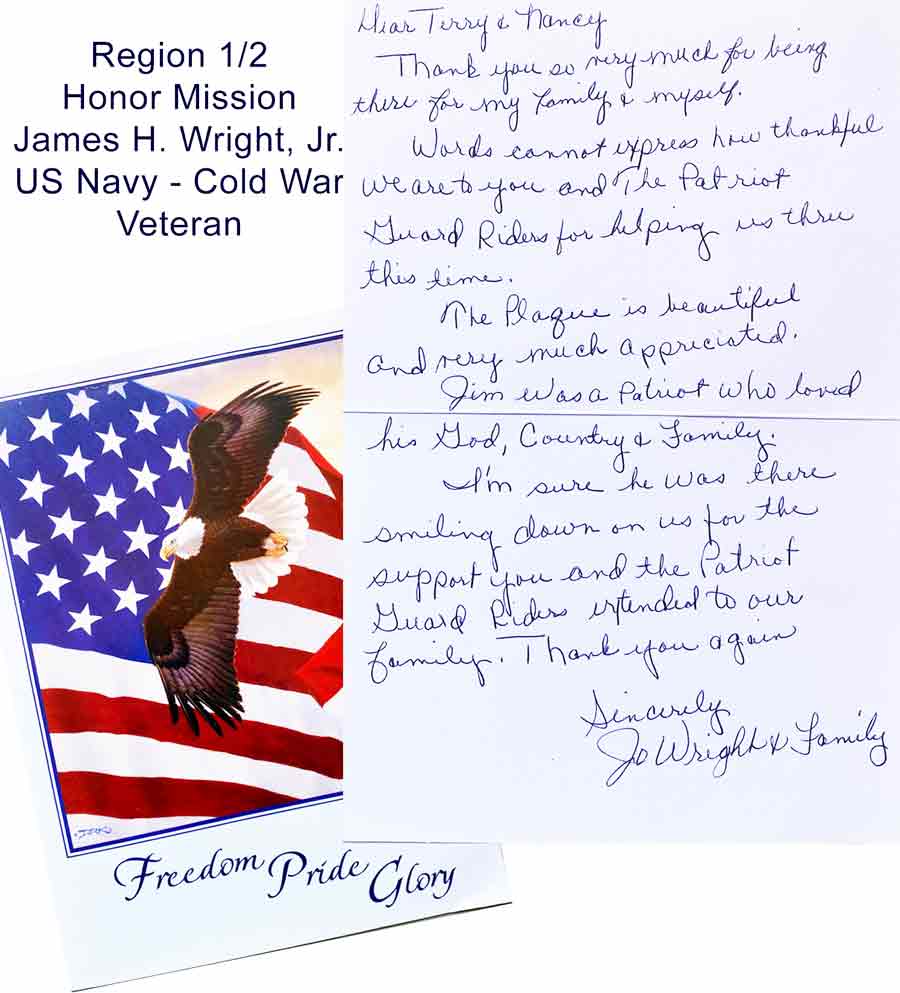 Region 1/2
Honor Mission
James H. Wright, Jr.
US Navy - Cold War
Veteran
Dear Terry & Nancy
Thank you so very much for being
there for my family & myself.
Words cannot express how thankful
we are to you and The Patriot
Guard Riders for helping us thru
this time.
The Plaque is beautiful
and very much appreciated.
Jim was a Patriot who loved
his God, Country & Family.
I'm sure he was there
smiling down on us for the
support you and the Patriot
Guard Riders extended to our
family. Thank you again
Sincerely
Jo Wright & Family
Freedom Pride Glory